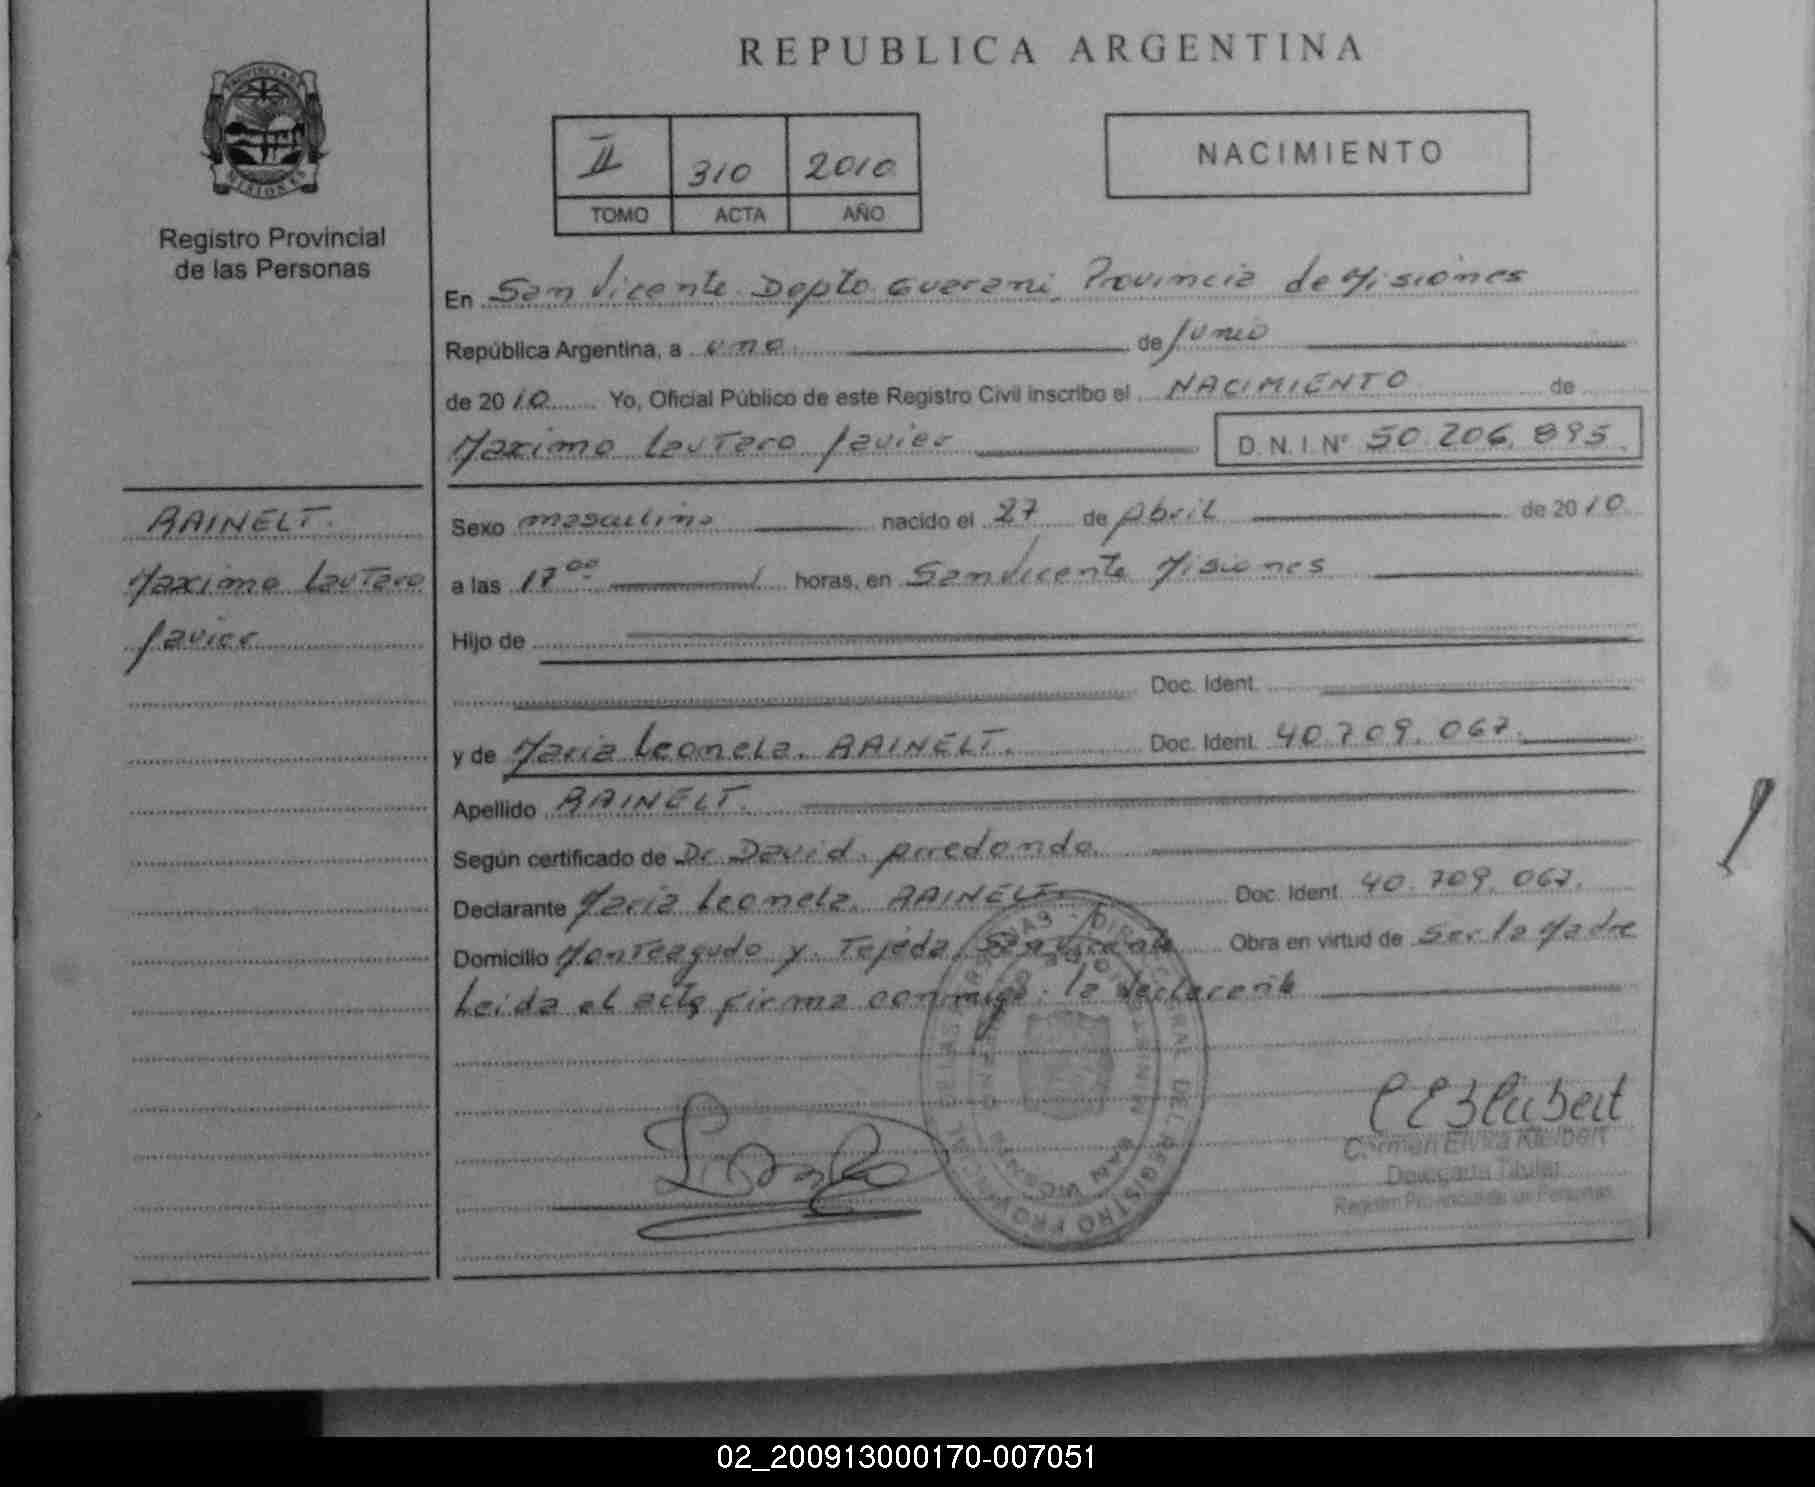 REPUBLICA ARGENTINA
PROVINCIA DE
MISIONES
Registro Provincial
de las Personas
II 310 2010
TOMO ACTA AÑO
NACIMIENTO
En San Vicente Depto Guarani, Provincia de Misiones
República Argentina, a uno de Junio
de 2010 Yo, Oficial Público de este Registro Civil inscribo el NACIMIENTO de
Maximo Lautaro Javier D.N.I.Nº 50.206.895.
RAINELT.
Maximo Lautaro
Javier
Sexo masculino nacido el 27 de Abril de 2010
a las 17 00 horas, en San Vicente Misiones
Hijo de
Doc. Ident.
y de Maria Leonela. RAINELT. Doc. Ident. 40.709.067.
Apellido RAINELT.
Según certificado de Dr David. Arredondo.
Declarante Maria Leonela. RAINELT. Doc. Ident. 40.709.067.
Domicilio Monteagudo y Tejeda, San Vicente Obra en virtud de Ser la Madre
Leida el acta firma conmigo. la declarante
Carmen Elvira Kleibert
Delegada Titular
Registro Provincial de las Personas
02_200913000170-007051